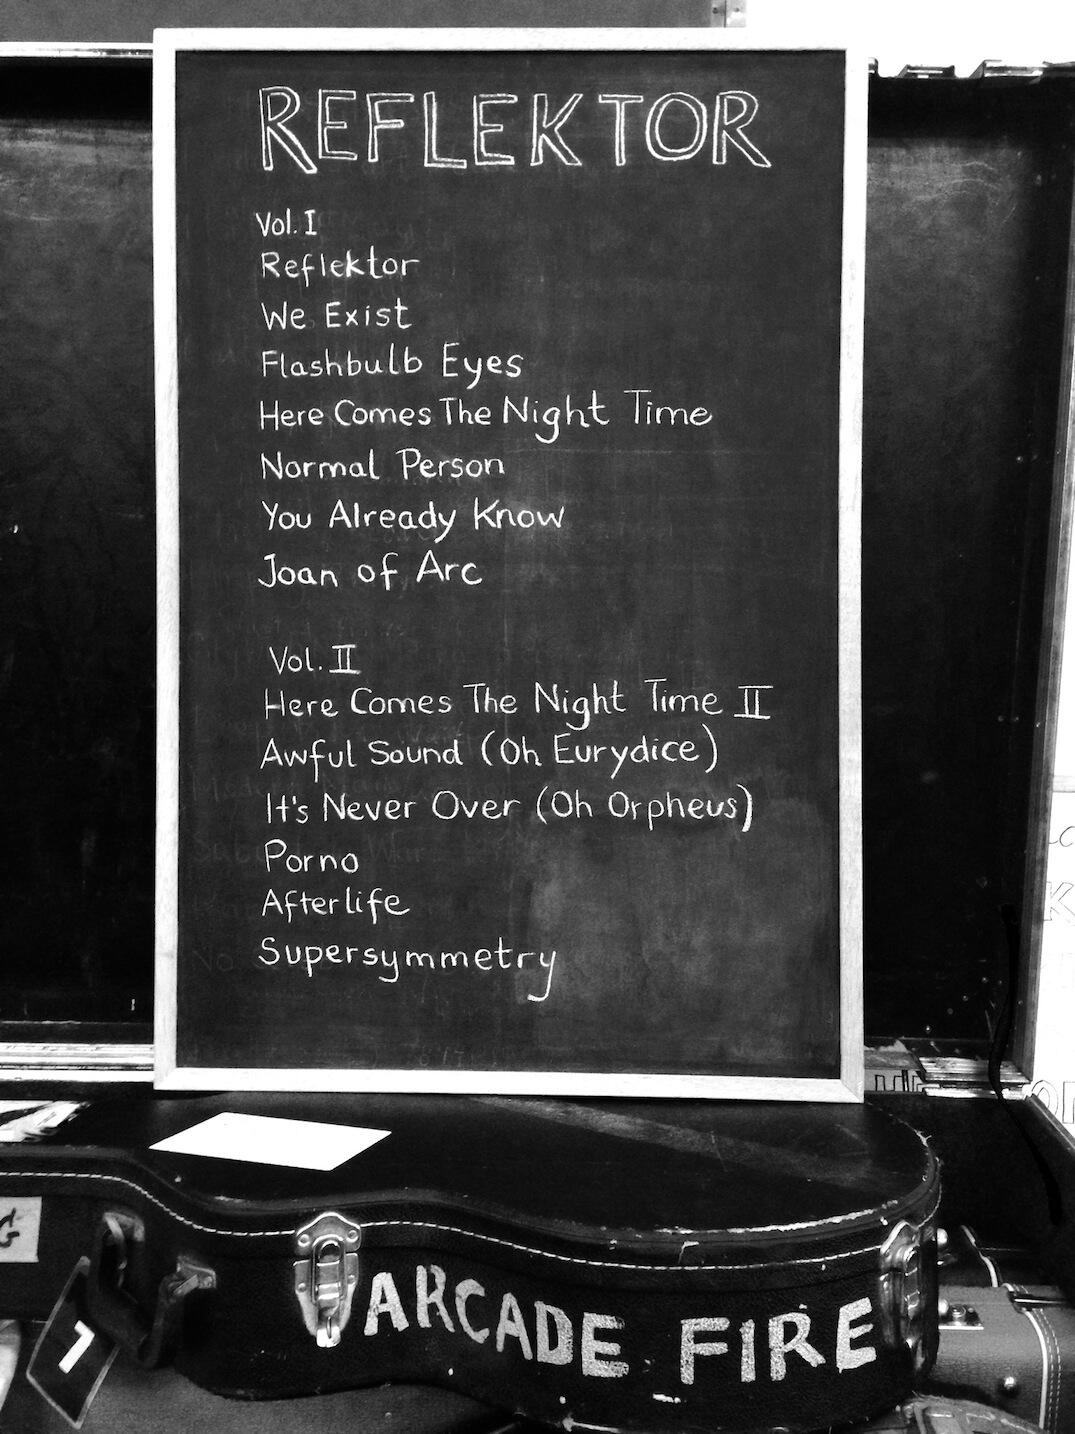 REFLEKTOR
Vol. I
Reflektor
We Exist
Flashbulb Eyes
Here Comes The Night Time
Normal Person
You Already Know
Joan of Arc
Vol. II
Here Comes The Night Time II
Awful Sound (Oh Eurydice)
It's Never Over (Oh Orpheus)
Porno
Afterlife
Supersymmetry
G
7
ARCADE FIRE